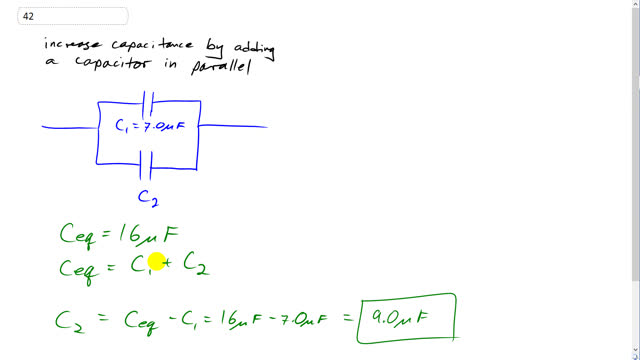 42
increase capacitance by adding
a capacitor in parallel
C₁ = 7.0μF
C₂
Ceq = 16μF
Ceq = C₁ + C₂
C₂ = Ceq - C₁ = 16μF - 7.0μF = 9.0μF